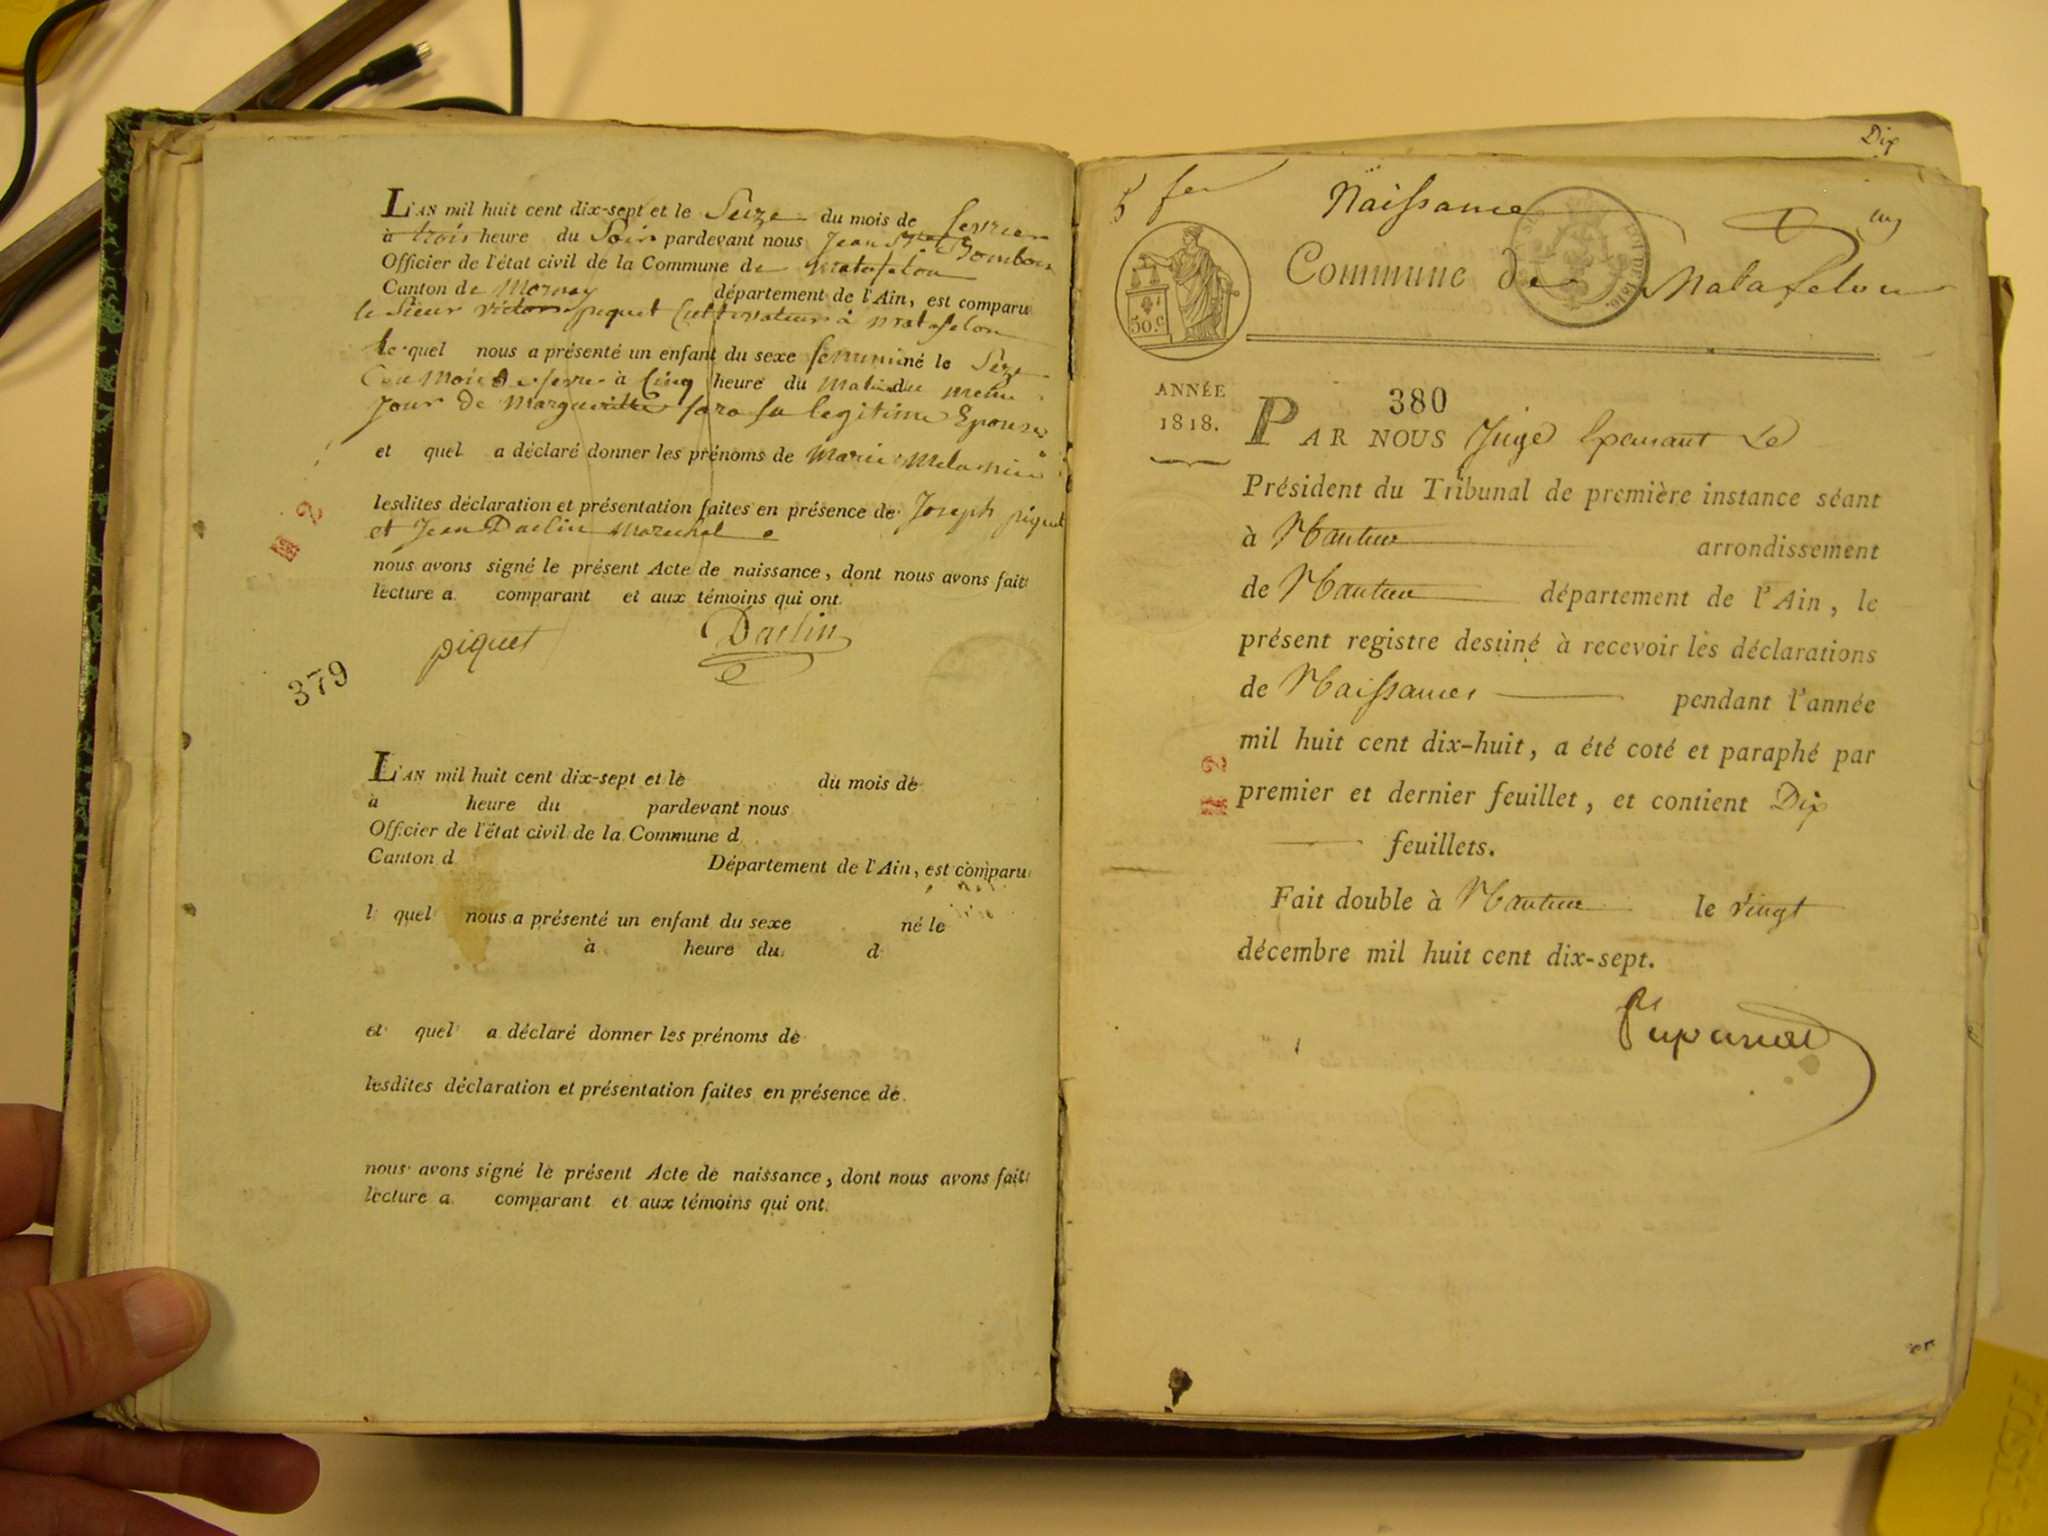 L'AN mil huit cent dix-sept et le Seize du mois de fevrier
à trois heure du Soir pardevant nous Jean
Officier de l'état civil de la Commune de matafelon
Canton de Mornay département de l'Ain, est comparu
le Sieur victor piquet Cultivateur à matafelon
le quel nous a présenté un enfant du sexe feminin né le Seize
à Cinq heure du Matin du meme
jour de Margueritte sa legitime Epouse
et quel a déclaré donner les prénoms de Marie
lesdites déclaration et présentation faites en présence de Joseph piquet
et Jean Daclin Marechal
nous avons signé le présent Acte de naissance, dont nous avons fait
lecture a comparant et aux témoins qui ont
piquet Daclin
379
L'AN mil huit cent dix-sept et le du mois de
à heure du pardevant nous
Officier de l'état civil de la Commune d
Canton d Département de l'Ain, est comparu
l quel nous a présenté un enfant du sexe né le
à heure du d
et quel a déclaré donner les prénoms de
lesdites déclaration et présentation faites en présence de
nous avons signé le présent Acte de naissance, dont nous avons fait
lecture a comparant et aux témoins qui ont
Dix
Naissance
Commune de Matafelon
50.c
ANNÉE
1818.
380
PAR NOUS Juge Le
Président du Tribunal de première instance séant
à Nantua arrondissement
de Nantua département de l'Ain, le
présent registre destiné à recevoir les déclarations
de Naissances pendant l'année
mil huit cent dix-huit, a été coté et paraphé par
premier et dernier feuillet, et contient Dix
feuillets.
Fait double à Nantua le vingt
décembre mil huit cent dix-sept.